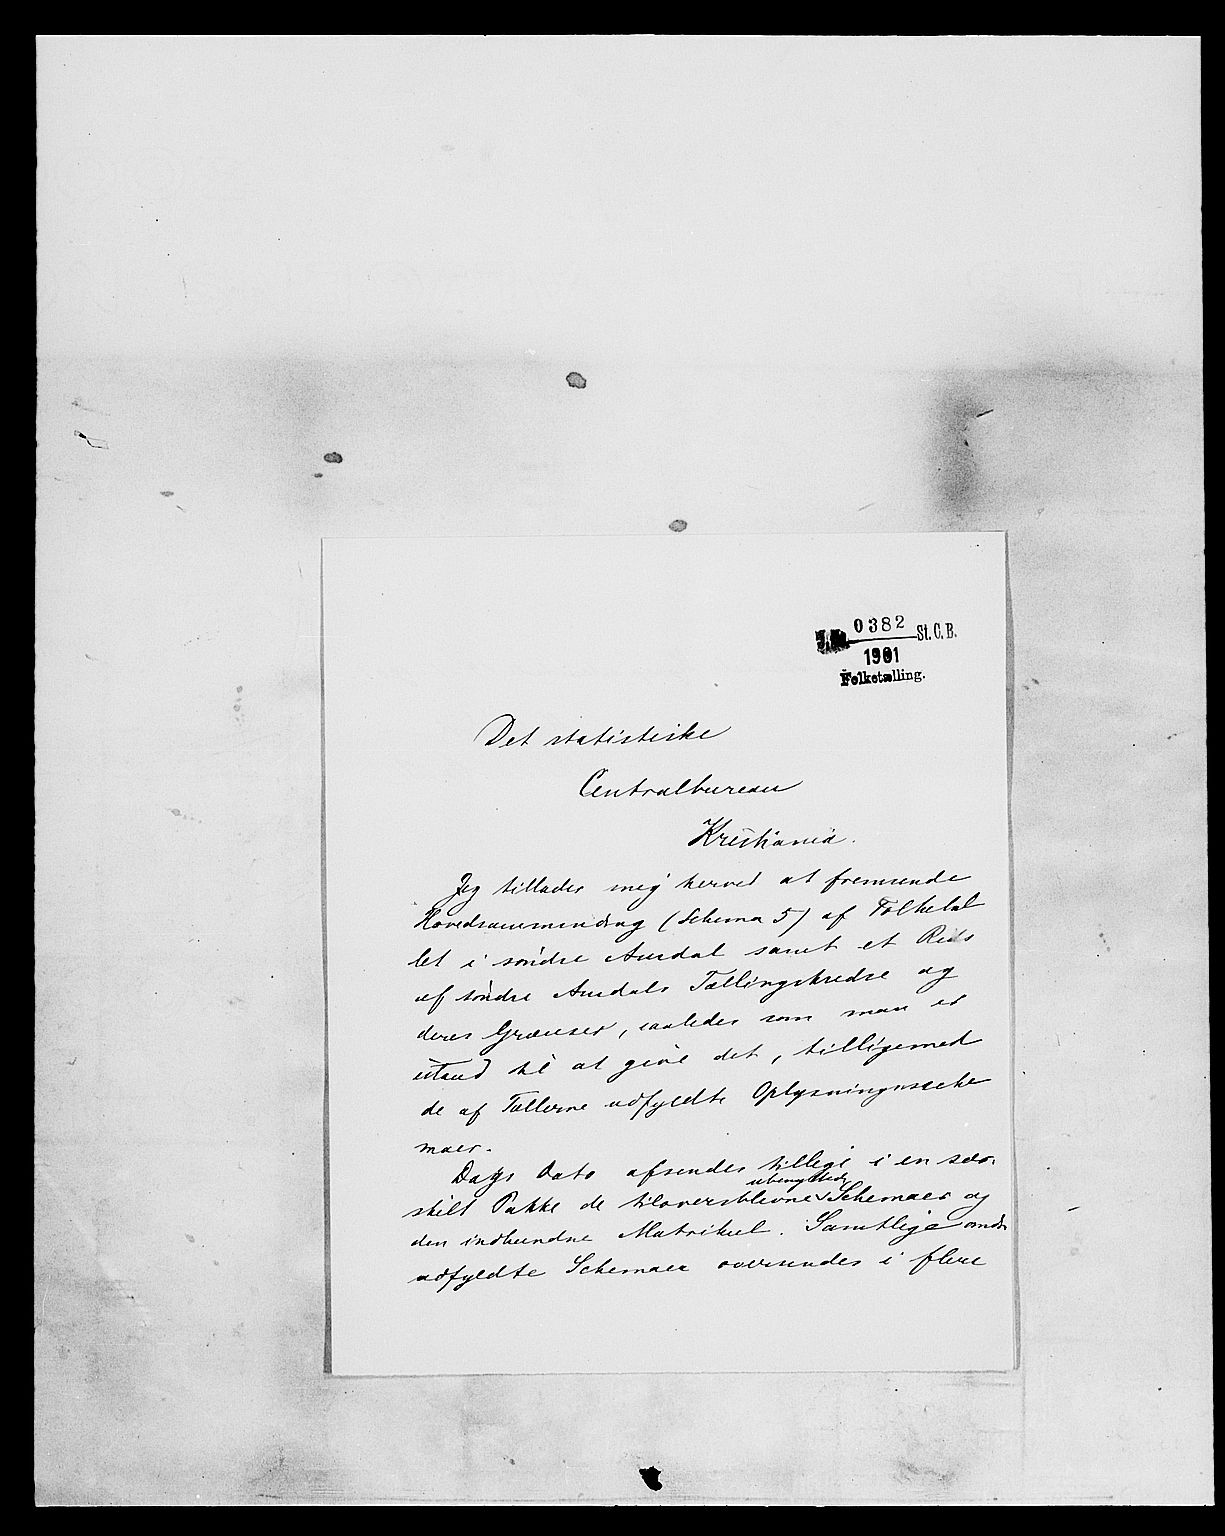 J.No. 0382 St. C. B.
1901
Folketælling.
Det statistiske
Centralbureau
Kristiania.
Jeg tillader mig herved at fremsende
Hovedsammendrag (Schema 5) af Folketal
let i søndre Aurdal samt et Rids
af søndre Aurdals Tællingskredse og
deres Grænser, saaledes som man er
istand til at give det, tilligemed
de af Tællerne udfyldte Oplysningssche
maer.
Dags Dato afsendes tillige i en sær-
skilt Pakke de tiloversblevne ubenyttede Schemaer og
den indbundne Matrikul. Samtlige andre
udfyldte Schemaer oversendes i flere